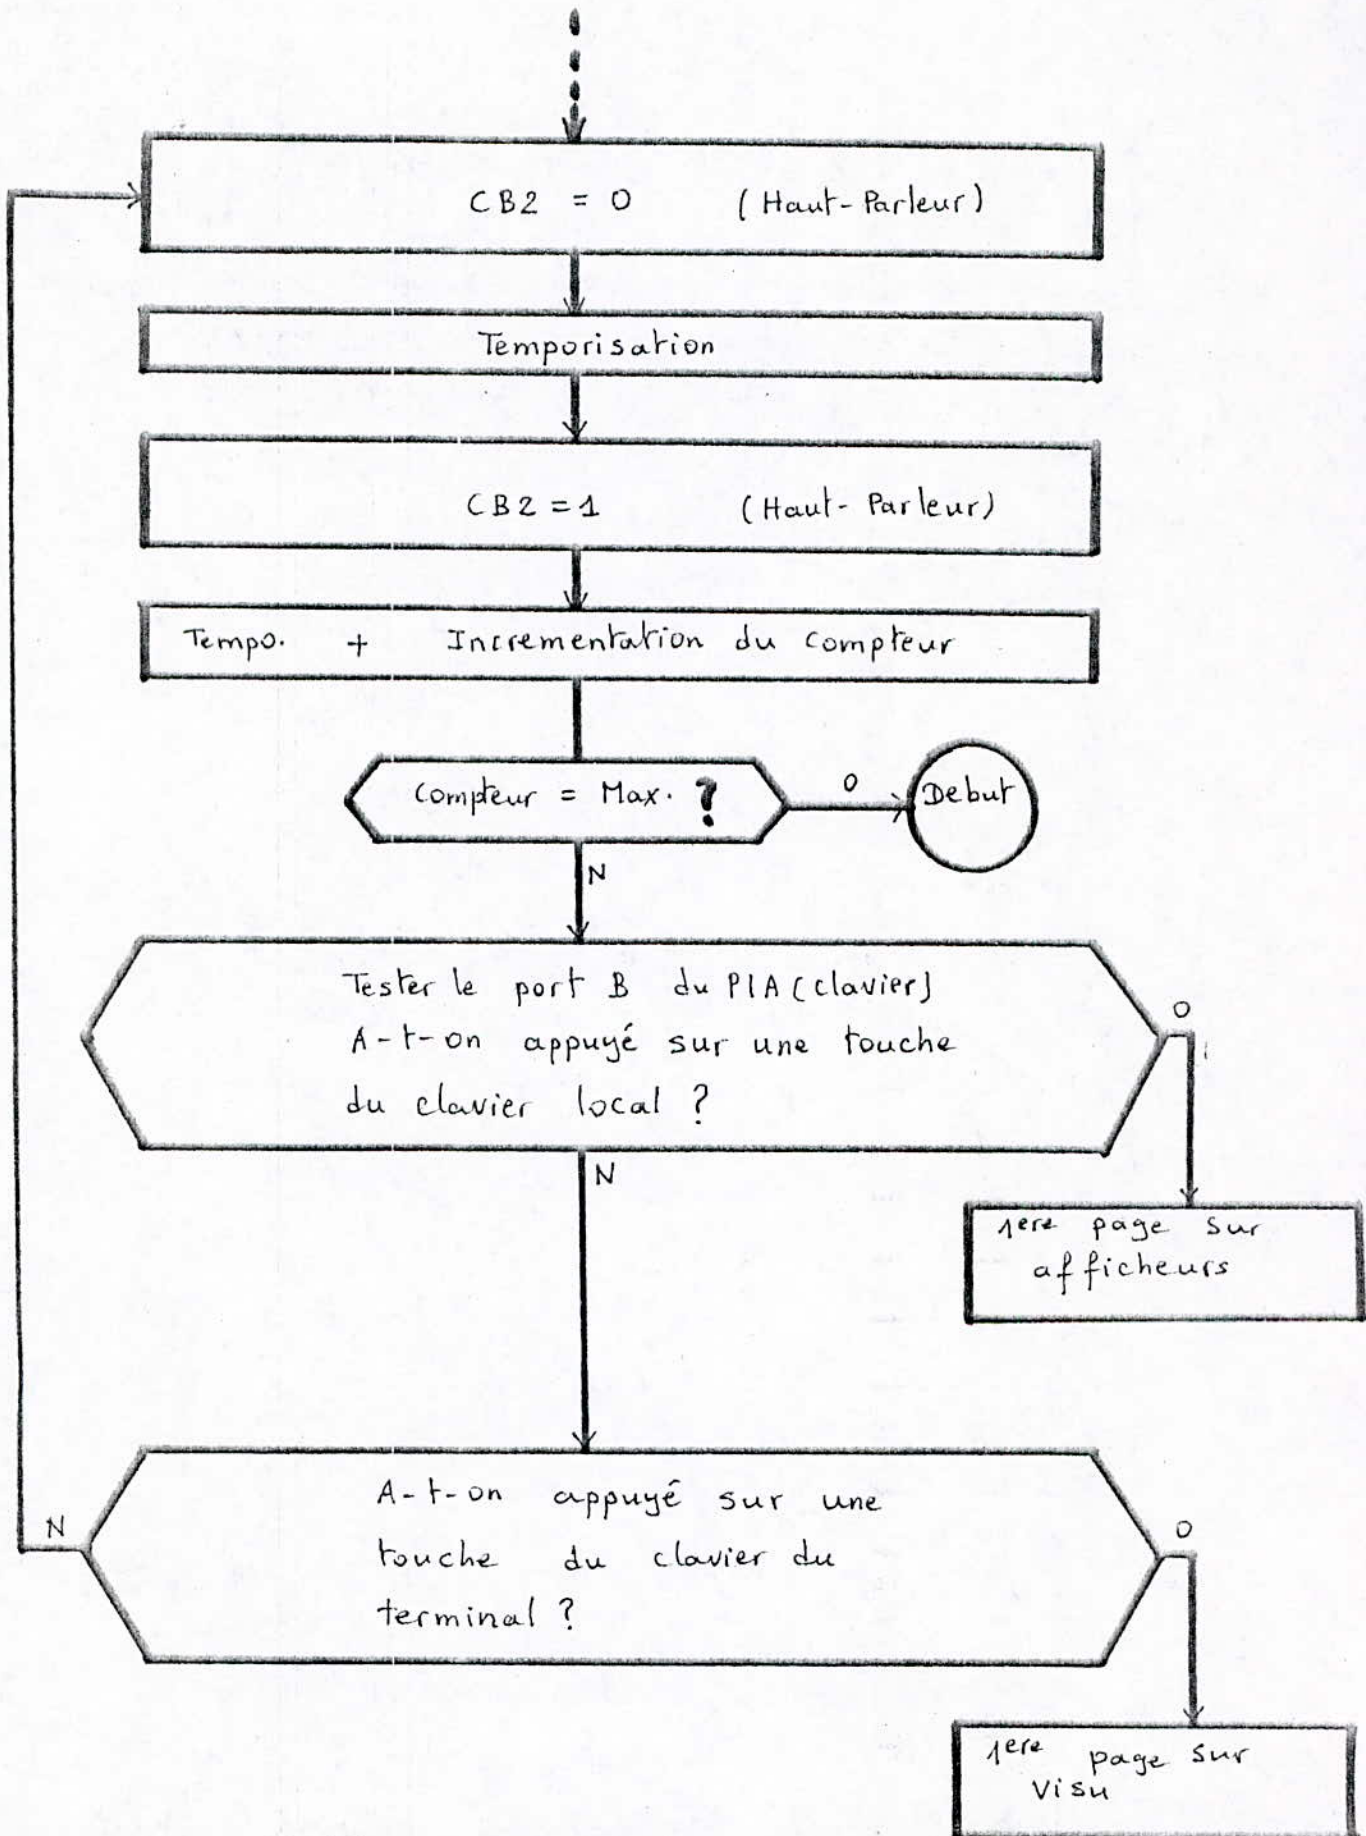 CB2 = 0 (Haut-Parleur)
Temporisation
CB2 = 1 (Haut-Parleur)
Tempo. + Incrementation du compteur
Compteur = Max. ?
O
Debut
N
Tester le port B du PIA (clavier)
A-t-on appuyé sur une touche
du clavier local ?
O
N
1ere page sur
afficheurs
A-t-on appuyé sur une
touche du clavier du
terminal ?
N
O
1ere page sur
Visu